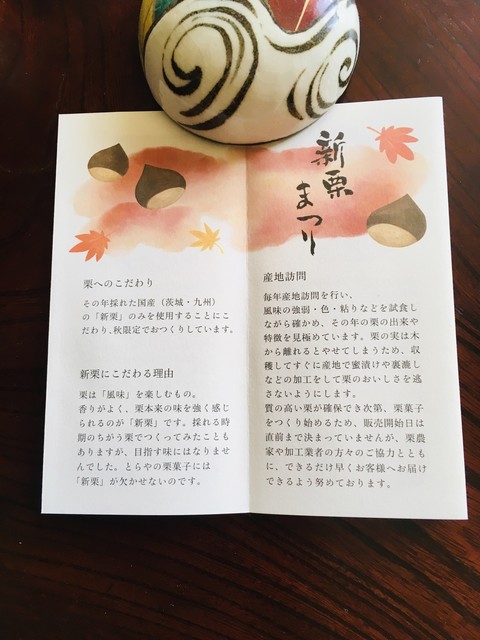 新栗
まつり
栗へのこだわり
その年採れた国産（茨城・九州）
の「新栗」のみを使用することにこ
だわり、秋限定でおつくりしています。
新栗にこだわる理由
栗は「風味」を楽しむもの。
香りがよく、栗本来の味を強く感じ
られるのが「新栗」です。採れる時
期のちがう栗でつくってみたことも
ありますが、目指す味にはなりませ
んでした。とらやの栗菓子には
「新栗」が欠かせないのです。
産地訪問
毎年産地訪問を行い、
風味の強弱・色・粘りなどを試食し
ながら確かめ、その年の栗の出来や
特徴を見極めています。栗の実は木
から離れるとやせてしまうため、収
穫してすぐに産地で蜜漬けや裏漉し
などの加工をして栗のおいしさを逃
さないようにします。
質の高い栗が確保でき次第、栗菓子
をつくり始めるため、販売開始日は
直前まで決まっていませんが、栗農
家や加工業者の方々のご協力ととも
に、できるだけ早くお客様へお届け
できるよう努めております。